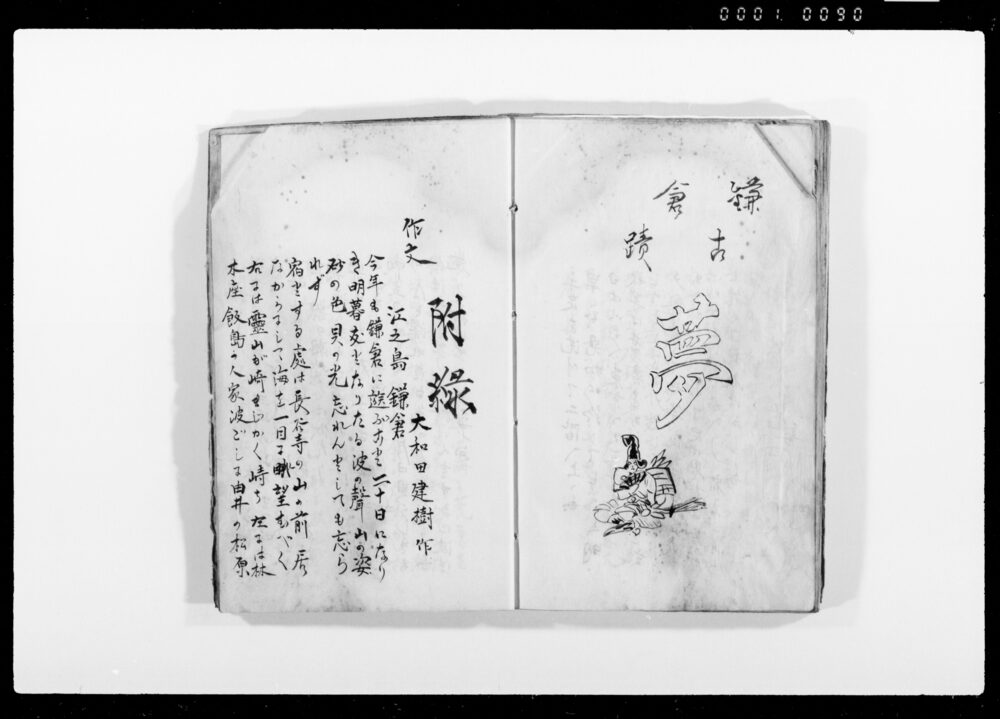 0001 0090
鎌倉
古蹟
夢
附録
作文
江之島鎌倉
大和田建樹作
今年も鎌倉に遊ぶこと二十日になり
き明暮友となりたる波の聲山の姿
砂の色貝の光忘れんとしても忘ら
れず
宿とする處は長谷寺の山の前 居
ながらにして海を一目に眺望すべく
右には靈山が崎ちかく峙ち左には林
木座飯島の人家波ごしに由井の松原